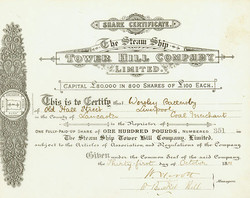 SHARE CERTIFICATE.
The Steam Ship
TOWER HILL COMPANY
LIMITED.
CAPITAL £80,000 IN 800 SHARES OF £100 EACH.
This is to Certify that Worsley Battersby
of Old Hall Street Liverpool
in the County of Lancaster Coal Merchant
is the Proprietor of
One fully paid-up Share of ONE HUNDRED POUNDS, numbered 501 in
The Steam Ship Tower Hill Company, Limited.
subject to the Articles of Association and Regulations of the Company.
Given under the Common Seal of the said Company,
the Thirty first day of October